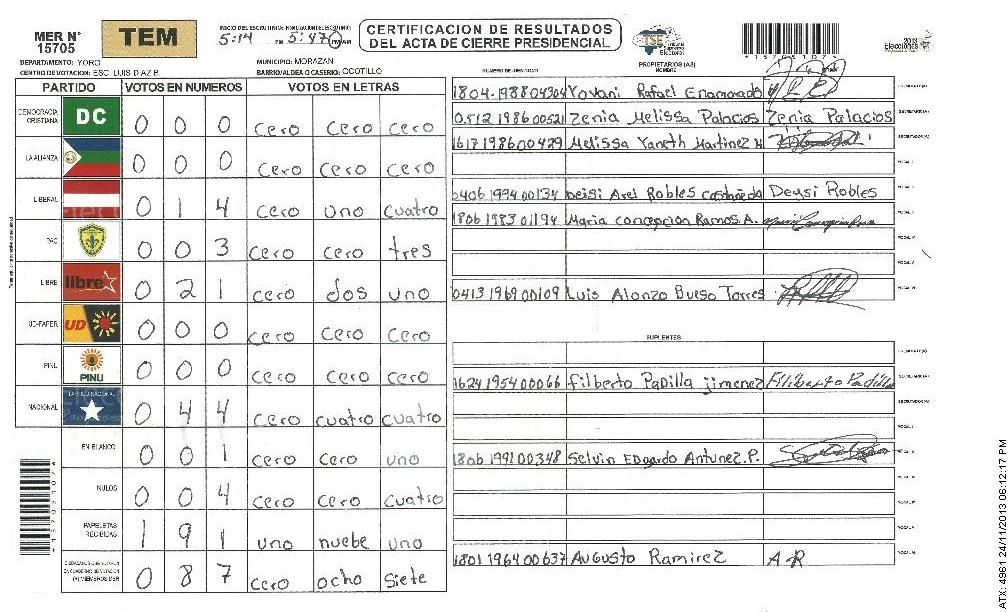 MER N° 15705
TEM
INICIO DEL ESCRUTINIO: FINALIZACION DEL ESCRUTINIO:
5:14 PM 5:47 PM AM
CERTIFICACION DE RESULTADOS
DEL ACTA DE CIERRE PRESIDENCIAL
TSE Tribunal Supremo Electoral
2013
Elecciones
*157051071*
DEPARTAMENTO: YORO
MUNICIPIO: MORAZAN
CENTRO DE VOTACION: ESC. LUIS DIAZ B.
BARRIO/ALDEA O CASERIO: OCOTILLO
NUMERO DE IDENTIDAD
PROPIETARIOS (AS)
NOMBRE
PARTIDO VOTOS EN NUMEROS VOTOS EN LETRAS
DEMOCRACIA CRISTIANA DC 0 0 0 cero cero cero
LA ALIANZA 0 0 0 cero cero cero
LIBERAL 0 1 4 cero uno cuatro
PAC 0 0 3 cero cero tres
LIBRE libre 0 2 1 cero dos uno
UD-FAPER UD 0 0 0 cero cero cero
PINU PINU 0 0 0 cero cero cero
NACIONAL PARTIDO NACIONAL 0 4 4 cero cuatro cuatro
EN BLANCO 0 0 1 cero cero uno
NULOS 0 0 4 cero cero cuatro
PAPELETAS RECIBIDAS 1 9 1 uno nuebe uno
CIUDADANOS QUE VOTARON EN CUADERNO DE VOTACION (+) MIEMBROS MER 0 8 7 cero ocho siete
1804-198804304 Yovani Rafael Enamorado PRESIDENTE(A)
0512 1986 00521 Zenia Melissa Palacios Zenia Palacios SECRETARIO(A)
1617 1986 00429 Melissa Yaneth Martinez M ESCRUTADOR(A)
VOCAL I
0406 1994 00134 Deisi Arel Robles castañeda Deysi Robles VOCAL II
1806 1983 01194 Maria concepcion Ramos A. VOCAL III
VOCAL IV
VOCAL V
0413 1969 00109 Luis Alonzo Bueso Torres VOCAL VI
SUPLENTES
PRESIDENTE(A)
1624 1954 00066 filberto Padilla jimenez Filiberto Padilla SECRETARIO(A)
ESCRUTADOR(A)
VOCAL I
1806 1991 00348 Selvin EDgardo Antunez.P. VOCAL II
VOCAL III
VOCAL IV
VOCAL V
1801 1964 00637 Augusto Ramirez A R VOCAL VI
ATX: 4961 24/11/2013 06:12:17 PM